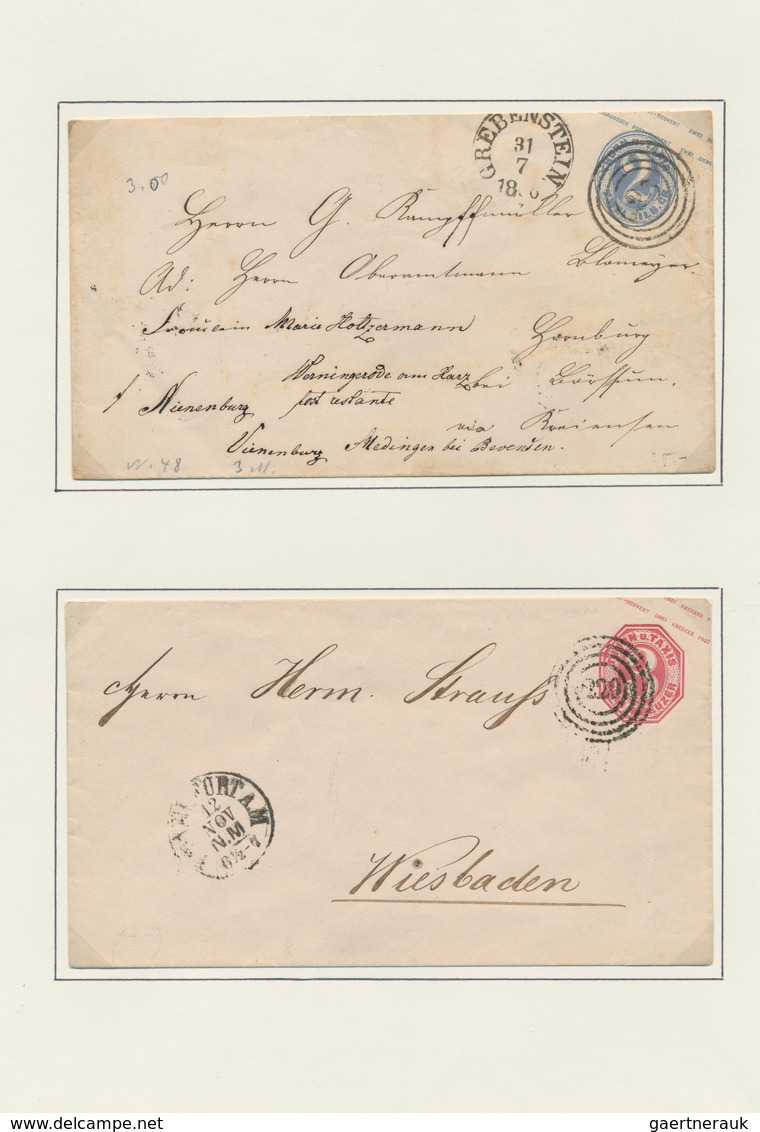 GREBENSTEIN
31
7
2
3.00
Herrn G. Kampffmüller
Ad: Herrn Oberamtmann Blomeyer.
Fräulein Marie Holtzermann Hornburg
Werningerode am Harz bei Börssum.
Nienenburg post restante
via Kreiensen
Vienenburg Medingen bei Bevensen.
N. 48 3 M.
DREI KREUZER
N U. TAXIS
220
Herrn Herm. Strauss
FRANKFURT A.M
12
NOV
N.M
6½-7
Wiesbaden
www.delcampe.net
gaertnerauk